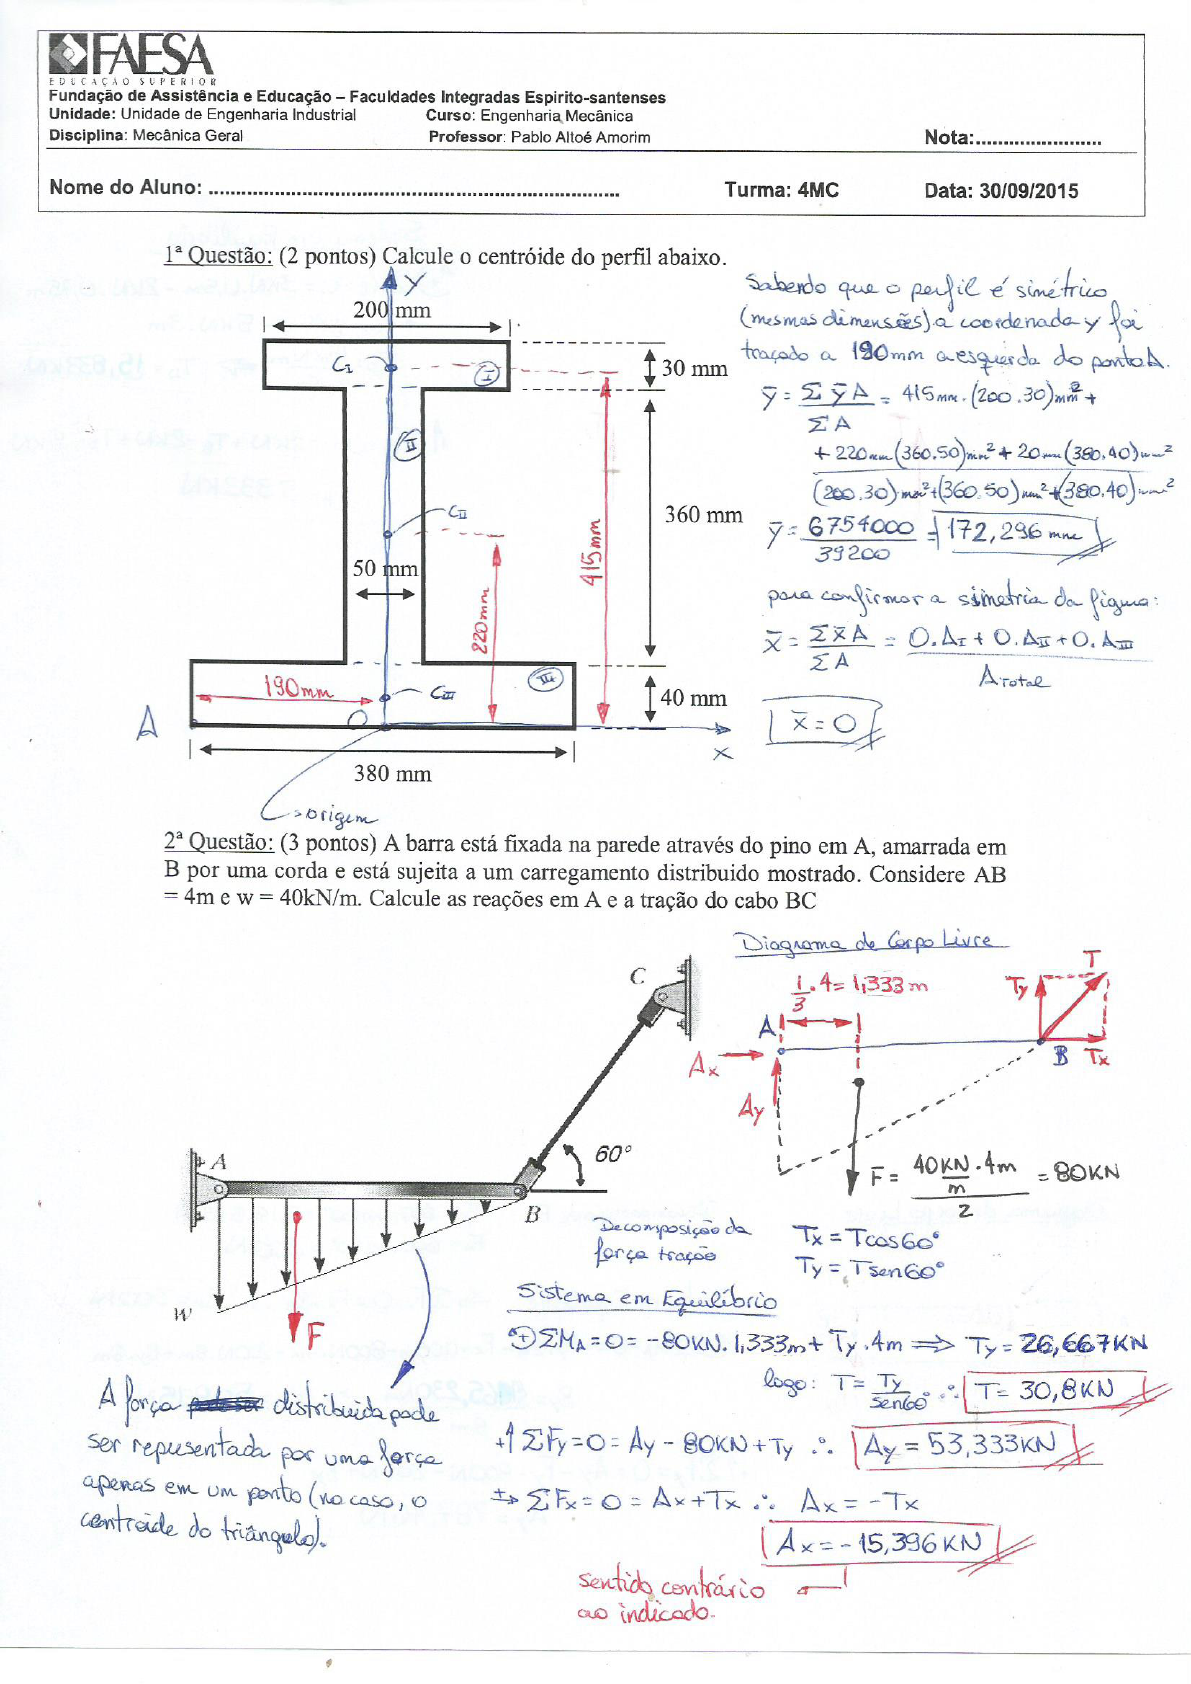 FAESA
EDUCAÇÃO SUPERIOR
Fundação de Assistência e Educação – Faculdades Integradas Espirito-santenses
Unidade: Unidade de Engenharia Industrial Curso: Engenharia Mecânica
Disciplina: Mecânica Geral Professor: Pablo Altoé Amorim Nota:.......................
Nome do Aluno: .......................................................................... Turma: 4MC Data: 30/09/2015
1ª Questão: (2 pontos) Calcule o centróide do perfil abaixo.
Y
200 mm
30 mm
360 mm
50 mm
40 mm
380 mm
C_I
I
II
C_II
415mm
220mm
190mm
C_III
III
A
O
x
origem
Sabendo que o perfil é simétrico
(mesmas dimensões) a coordenada y foi
traçado a 190mm a esquerda do ponto A.
ȳ = Σ ȳ A / Σ A = 415mm.(200.30)mm² +
+ 220mm(360.50)mm² + 20mm(380.40)mm²
(200.30)mm²+(360.50)mm²+(380.40)mm²
ȳ = 6754000 / 39200 = 172,296 mm
para confirmar a simetria da figura:
x̄ = Σ x̄ A / Σ A = 0.A_I + 0.A_II + 0.A_III / A_Total
x̄ = 0
2ª Questão: (3 pontos) A barra está fixada na parede através do pino em A, amarrada em
B por uma corda e está sujeita a um carregamento distribuido mostrado. Considere AB
= 4m e w = 40kN/m. Calcule as reações em A e a tração do cabo BC
Diagrama de Corpo Livre
1/3 . 4 = 1,333 m
A
Ax
Ay
Ty
T
B
Tx
F = 40KN/m . 4m / 2 = 80KN
C
60°
A
B
W
F
Decomposição da
força tração
Tx = Tcos60°
Ty = Tsen60°
Sistema em Equilíbrio
+ ΣM_A = 0 = -80KN.1,333m + Ty.4m ⟹ Ty = 26,667KN
logo: T = Ty / sen60° ∴ T = 30,8KN
+↑ ΣFy = 0 = Ay - 80KN + Ty ∴ Ay = 53,333KN
+→ ΣFx = 0 = Ax + Tx ∴ Ax = -Tx
Ax = -15,396KN
sentido contrário
ao indicado.
A força distribuida pode
ser representada por uma força
apenas em um ponto (no caso, o
centroide do triângulo).